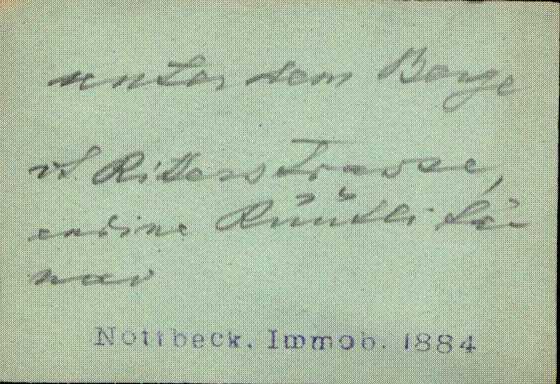 unter dem Berge
vt. Ritterstrasse,
endine Rüütli tä-
nav
Nottbeck. Immob. 1884